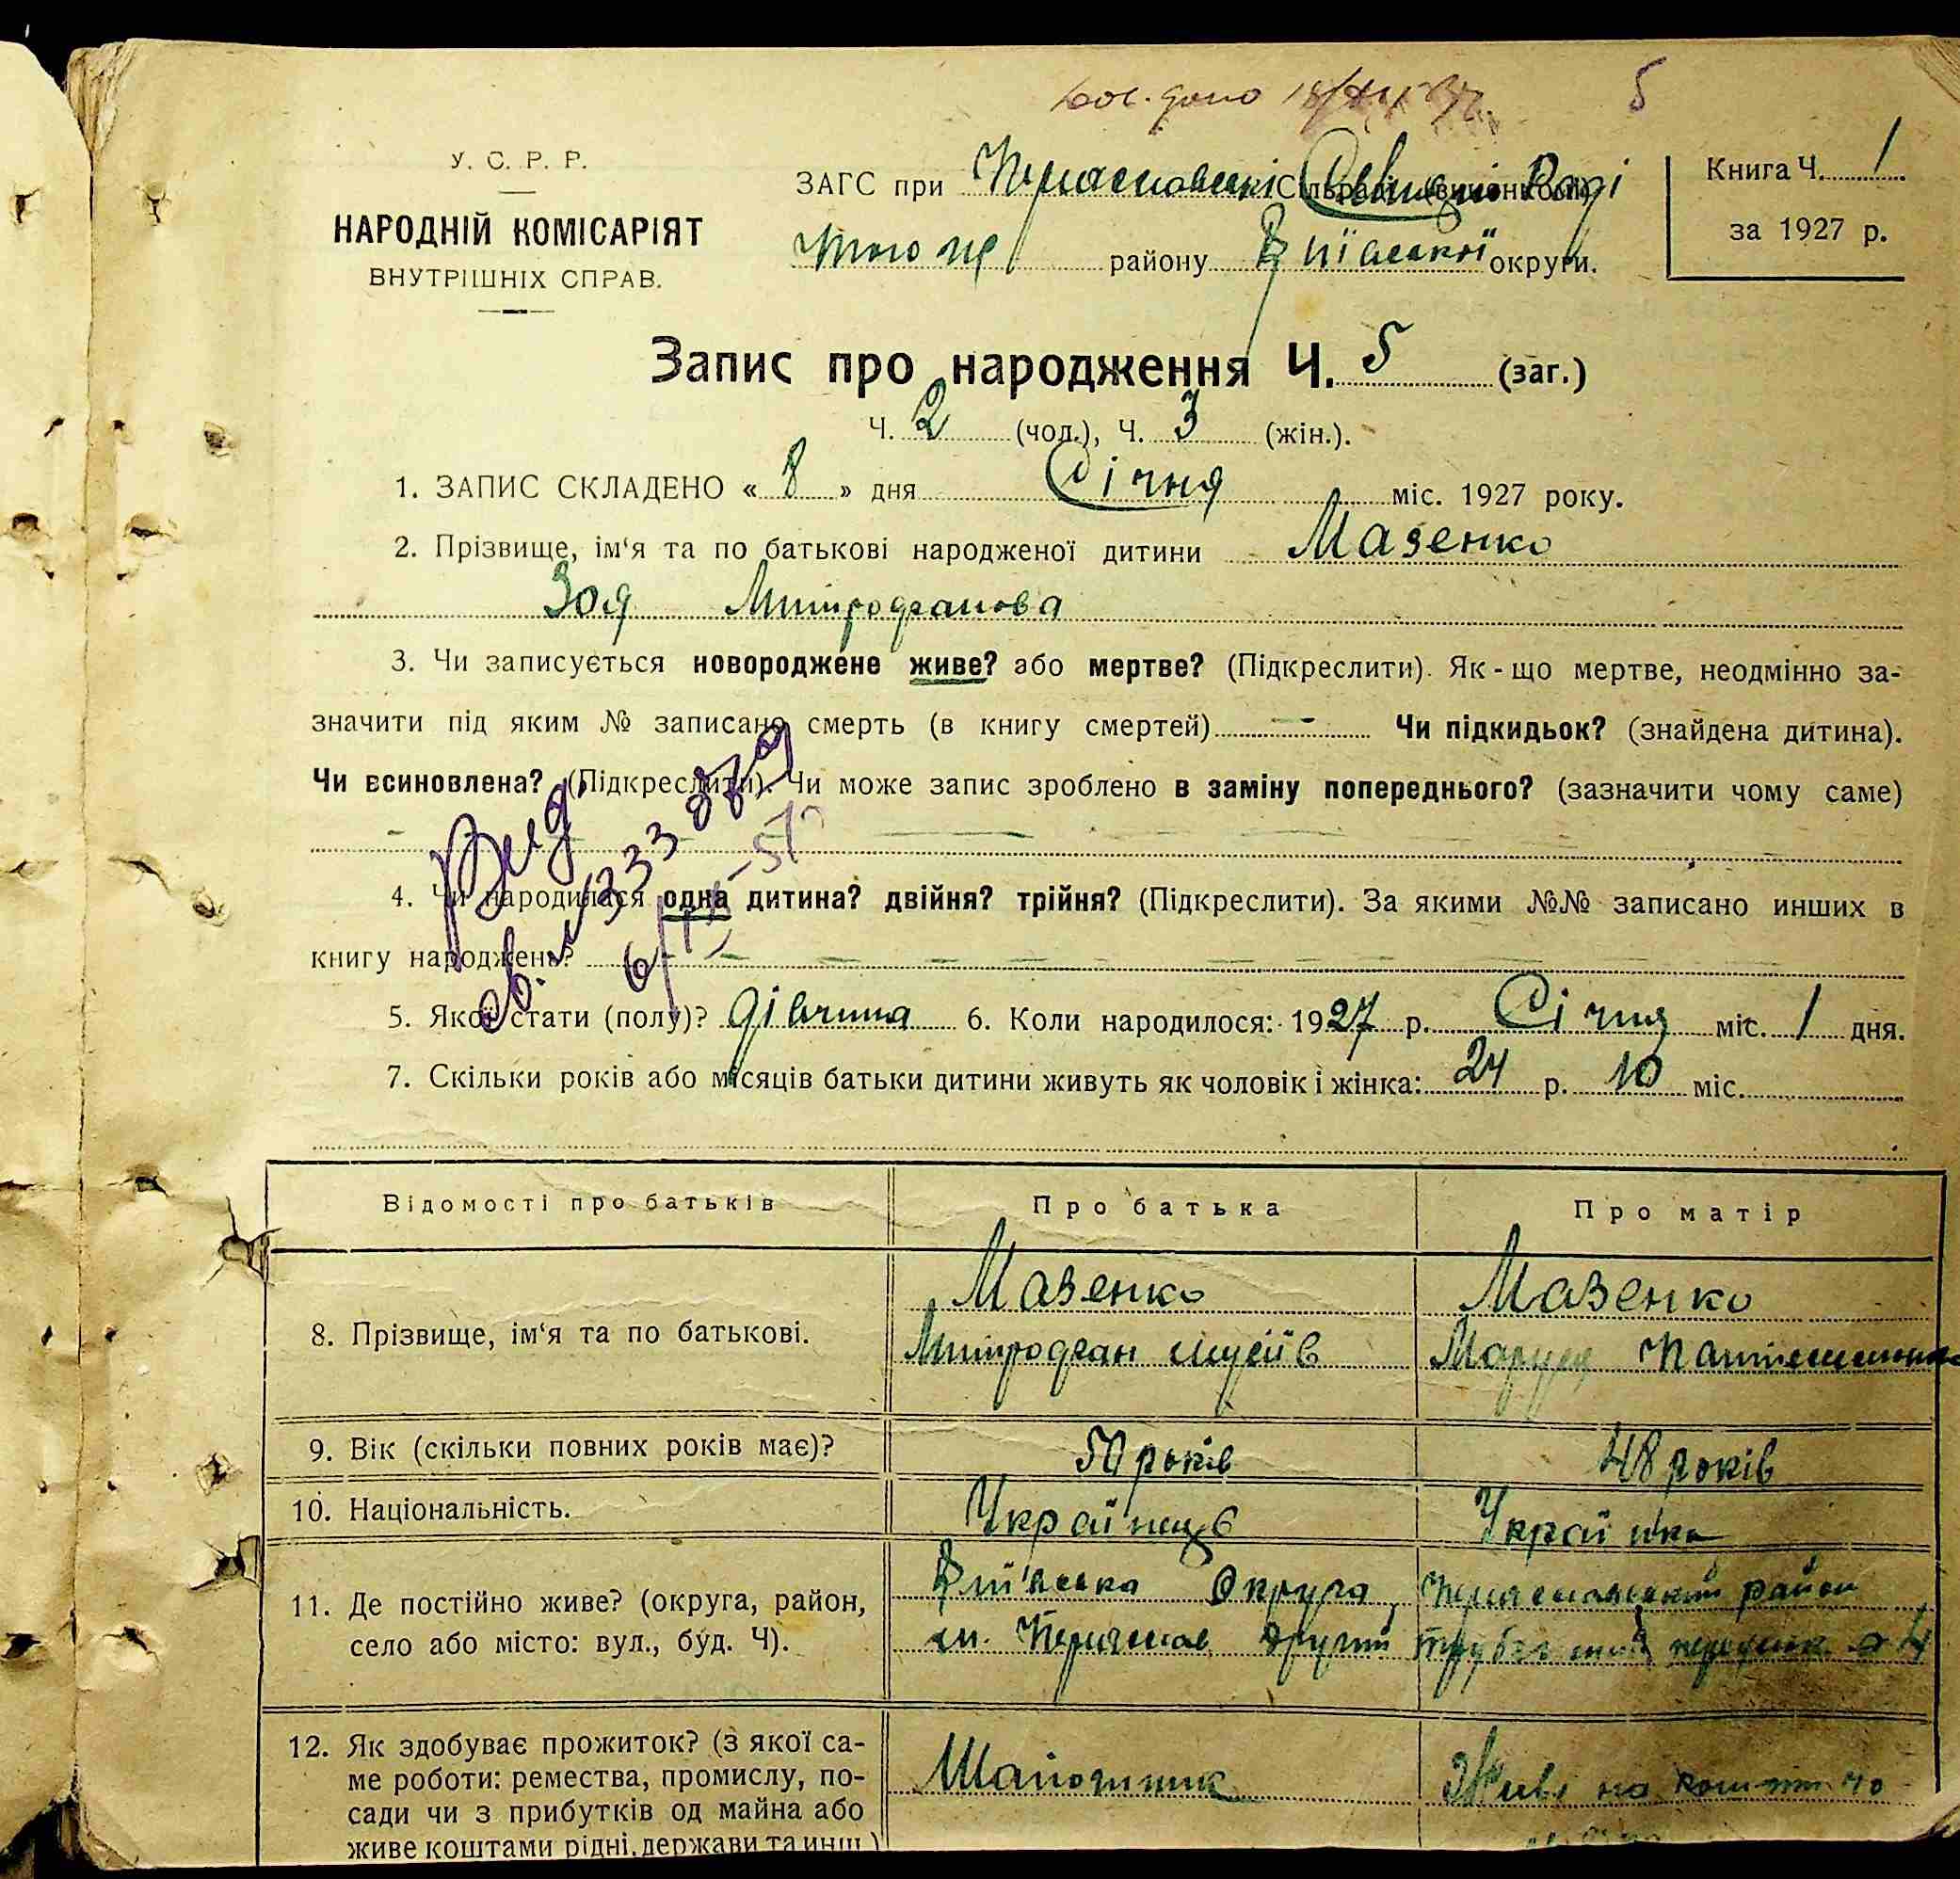 5
У. С. Р. Р.
НАРОДНІЙ КОМІСАРІЯТ
ВНУТРІШНІХ СПРАВ.
ЗАГС при Сільраді (виконкомі) Раді
того ж району Київської округи.
Книга Ч. 1
за 1927 р.
Запис про народження Ч. 5 (заг.)
Ч. 2 (чол.), Ч. 3 (жін.).
1. ЗАПИС СКЛАДЕНО « 8 » дня Січня міс. 1927 року.
2. Прізвище, ім'я та по батькові народженої дитини Мазенко
Зоя Митрофанова
3. Чи записується новороджене живе? або мертве? (Підкреслити). Як-що мертве, неодмінно за-
значити під яким № записано смерть (в книгу смертей) Чи підкидьок? (знайдена дитина).
Чи всиновлена? (Підкреслити). Чи може запис зроблено в заміну попереднього? (зазначити чому саме)
4. Чи народилася одна дитина? двійня? трійня? (Підкреслити). За якими №№ записано инших в
книгу народжень?
5. Якої стати (полу)? дівчина 6. Коли народилося: 1927 р. Січня міс. 1 дня.
7. Скільки років або місяців батьки дитини живуть як чоловік і жінка: 24 р. 10 міс.
Відомості про батьків Про батька Про матір
8. Прізвище, ім'я та по батькові. Мазенко Мазенко
Митрофан Маруся
9. Вік (скільки повних років має)? 50 років 48 років
10. Національність. Українець Українка
11. Де постійно живе? (округа, район, Київська Округа район
село або місто: вул., буд. Ч). м. другий
12. Як здобуває прожиток? (з якої са-
ме роботи: ремества, промислу, по- Шапошник Живе на
сади чи з прибутків од майна або
живе коштами рідні, держави та инш.)